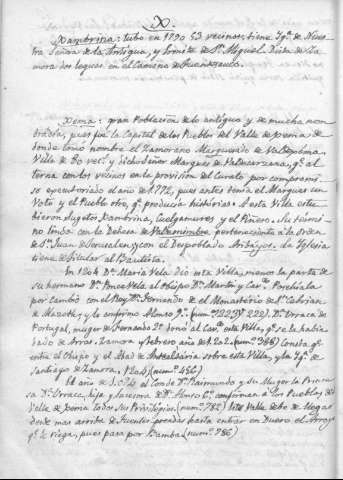 X.
Xambrina: tubo en 1790 53 vecinos, tiene Ygª. de Nues-
tra Señora de la Antigua, y Ermita de Sn. Miguel. Dista de Za-
mora dos leguas en el Camino de Fuentesauco.
Xema: gran Poblacion de lo antigua y de mucha nom
bradia, pues fue la Capital de los Pueblos del Valle de Xema de
donde tomo nombre el Zamorano Marquesado de Valdexema.
Villa de 80 vecs. y Sidichoseñor Marques de Valdecarzana, qe. al
terna con los vecinos en la provision del Curato, por compromi-
so executoriado al año de 1772, pues antes tenia el Marques un
Voto y el Pueblo otro, qe. producia historias. A esta Villa estu
bieron Sugetos Xambrina, Cuelgamures y el Piñero. Su termi-
no linda con la Dehesa de Valdemimbre perteneciente a la orden
de Sn. Juan de Jerusalen, y con el Despoblado la Yglesia
tiene de Titular al Bautista.
En 1204 Dª. Maria Vela dio esta Villa, menos la parte de
su hermano Dn. Ponce Vela al Obispo Dn. Martin y Cavdo. Porelvala
por cambio con el Rey Dn. Fernando de el Monasterio de Sn. Cebrian
de Mazote, y lo confirmo Alonso 9º. (numº 223 y 222). Dª. Urraca de
Portugal, muger de Fernando 2º donó al Cavdo esta Villa, qe. se la habia
dado de Arras. Zamora y febrero año de 1202. (numº 366) Consta qe.
entre el Obispo y el Abad de sobre esta Villa, y la Ygª. de
Santiago de Zamora. 1204 (numº 456)
El año de el Conde Dn. Raimundo, y Su Muger la Prince
sa Dª. Urraca, hija y sucesora de Dn. Alonso 6º confirman a los Pueblos del
Valle de Xema todos sus Privilegios. (numº 782) Este Valle de
desde mas arriba de Fuentes preadas hasta entrar en Duero el Arroyo
qe. le riega, pues pasa por Bamba (numº 786)